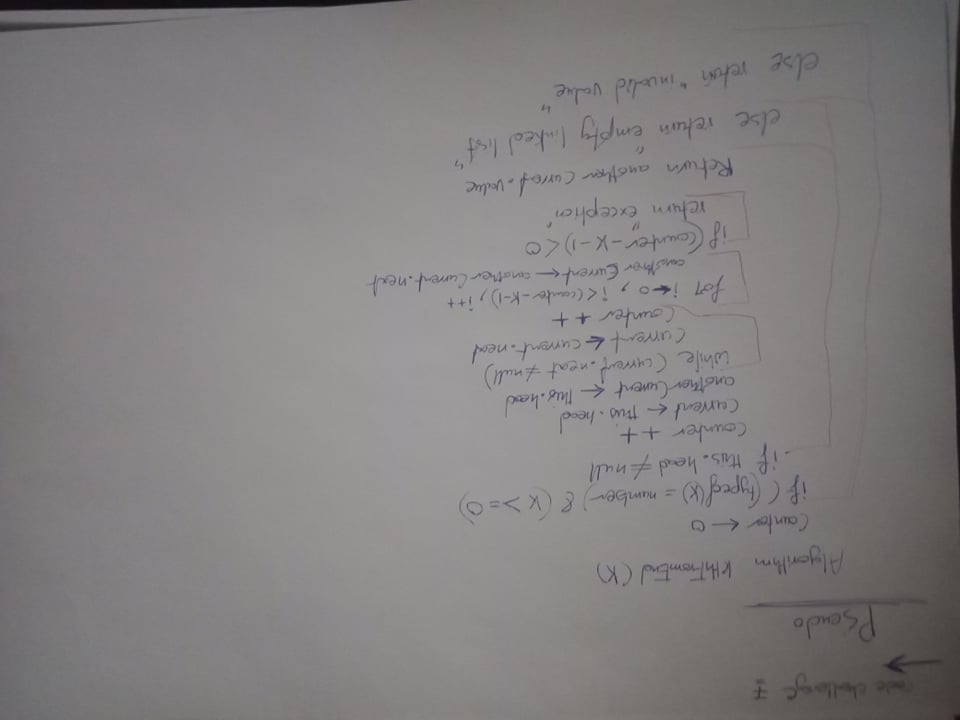 code challenge 7
Pseudo
Algorithm kthFromEnd (K)
Counter ← 0
if ( (typeof(k) = number) & (k >= 0)
if this.head ≠ null
counter ++
current ← this.head
another Current ← this.head
while (current.next ≠ null)
current ← current.next
Counter ++
for i ← 0 , i < (counter-k-1) , i++
another Current ← another Current.next
if (counter - k - 1) < 0
return "exception"
Return another current.value
else return "empty linked list"
else return "invalid value"